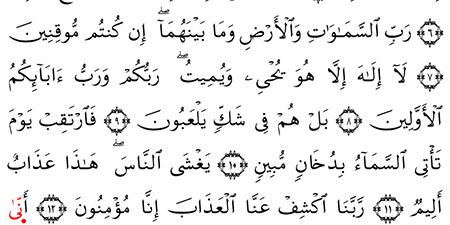 ﴿٦﴾ رَبِّ السَّمَـٰوَٰتِ وَالْأَرْضِ وَمَا بَيْنَهُمَآ ۖ إِن كُنتُم مُّوقِنِينَ
﴿٧﴾ لَآ إِلَـٰهَ إِلَّا هُوَ يُحْىِۦ وَيُمِيتُ ۖ رَبُّكُمْ وَرَبُّ ءَابَآئِكُمُ
الْأَوَّلِينَ ﴿٨﴾ بَلْ هُمْ فِى شَكٍّ يَلْعَبُونَ ﴿٩﴾ فَارْتَقِبْ يَوْمَ
تَأْتِى السَّمَآءُ بِدُخَانٍ مُّبِينٍ ﴿١٠﴾ يَغْشَى النَّاسَ ۖ هَـٰذَا عَذَابٌ
أَلِيمٌ ﴿١١﴾ رَبَّنَا اكْشِفْ عَنَّا الْعَذَابَ إِنَّا مُؤْمِنُونَ ﴿١٢﴾ أَنَّىٰ